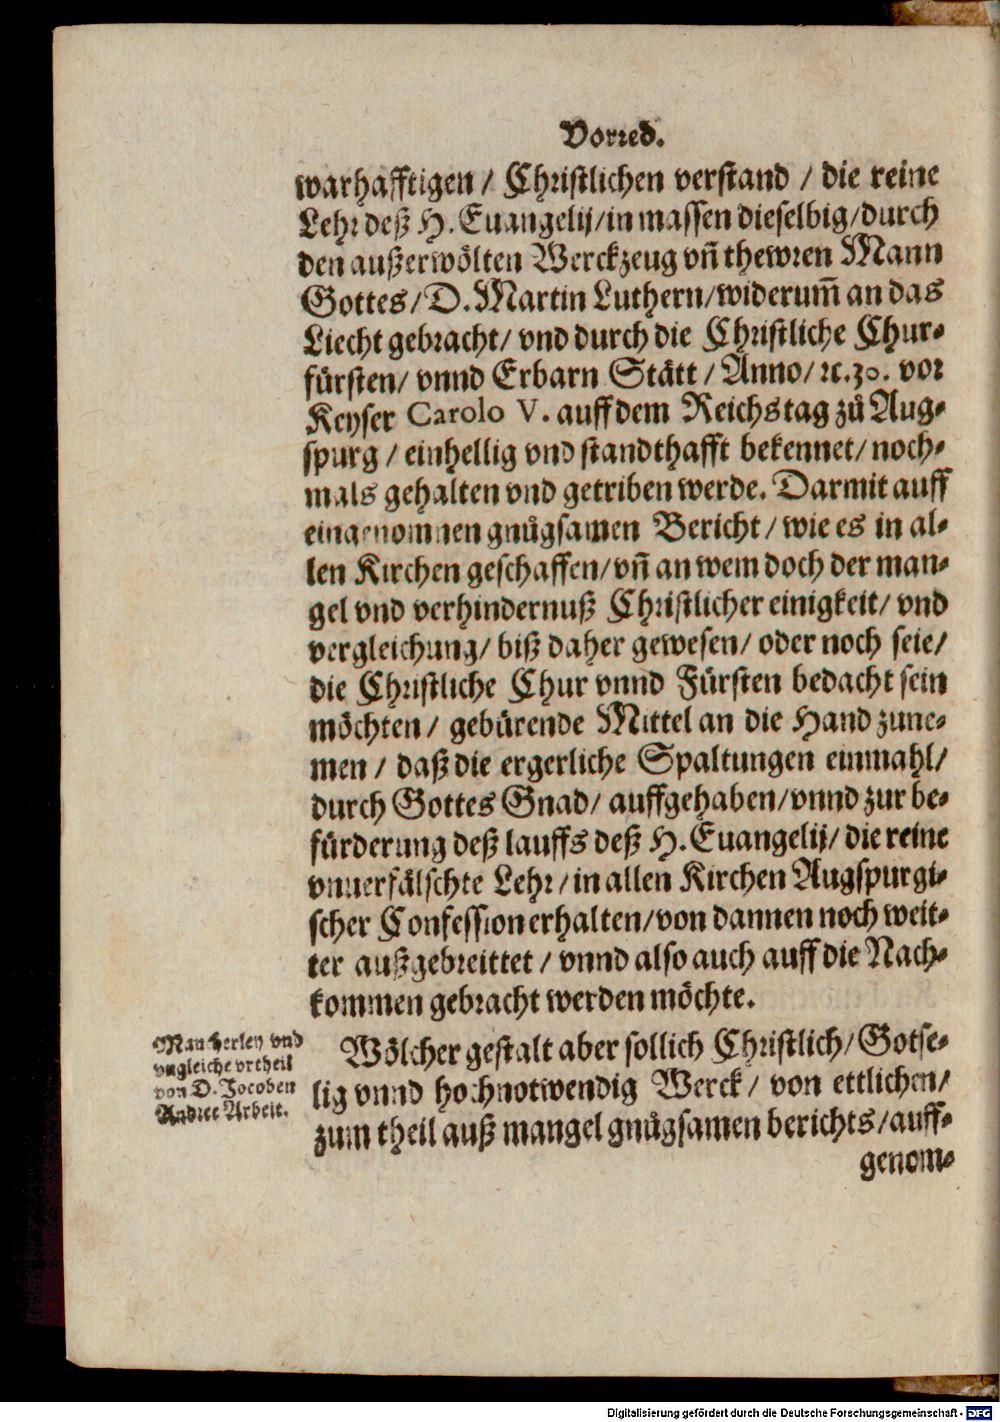 Vorred.
warhafftigen / Christlichen verstand / die reine
Lehr deß H. Euangelij/in massen dieselbig/durch
den außerwölten Werckzeug vñ thewren Mann
Gottes/D. Martin Luthern/widerum̃ an das
Liecht gebracht/ vnd durch die Christliche Chur-
fürsten/ vnnd Erbarn Stätt / Anno/ ꝛc.30. vor
Keyser Carolo V. auff dem Reichstag zů Aug-
spurg / einhellig vnd standthafft bekennet/ noch-
mals gehalten vnd getriben werde. Darmit auff
eingenommen gnůgsamen Bericht / wie es in al-
len Kirchen geschaffen/vñ an wem doch der man-
gel vnd verhindernuß Christlicher einigkeit/ vnd
vergleichung/ biß daher gewesen/ oder noch seie/
die Christliche Chur vnnd Fürsten bedacht sein
möchten/ gebürende Mittel an die Hand zune-
men / daß die ergerliche Spaltungen einmahl/
durch Gottes Gnad/ auffgehaben/vnnd zur be-
fürderung deß lauffs deß H. Euangelij/ die reine
vnuerfälschte Lehr/in allen Kirchen Augspurgi-
scher Confession erhalten/von dannen noch weit-
ter außgebreittet / vnnd also auch auff die Nach-
kommen gebracht werden möchte.
Mancherley vnd
vngleiche vrtheil
von D. Jocoben
Andree Arbeit.
Wölcher gestalt aber sollich Christlich/Gotse-
lig vnnd hochnotwendig Werck/ von ettlichen/
zum theil auß mangel gnůgsamen berichts/auff-
genom-
Digitalisierung gefördert durch die Deutsche Forschungsgemeinschaft - DFG